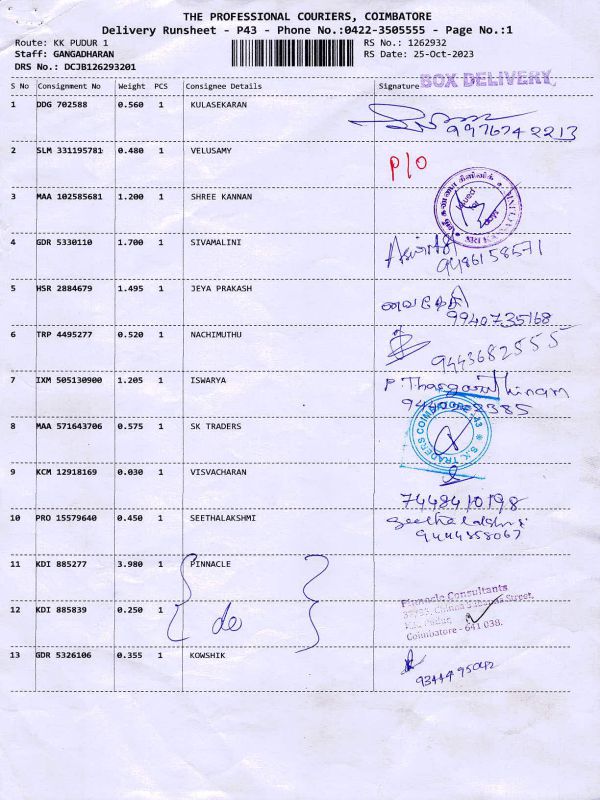 THE PROFESSIONAL COURIERS, COIMBATORE
Delivery Runsheet - P43 - Phone No.:0422-3505555 - Page No.:1
Route: KK PUDUR 1 RS No.: 1262932
Staff: GANGADHARAN RS Date: 25-Oct-2023
DRS No.: DCJB126293201
BOX DELIVERY
S No Consignment No Weight PCS Consignee Details Signature
1 DDG 702588 0.560 1 KULASEKARAN
9976742213
2 SLM 331195781 0.480 1 VELUSAMY P/O
3 MAA 102585681 1.200 1 SHREE KANNAN
4 GDR 5330110 1.700 1 SIVAMALINI
9486158571
5 HSR 2884679 1.495 1 JEYA PRAKASH
9940735168
6 TRP 4495277 0.520 1 NACHIMUTHU
9443682555
7 IXM 505130900 1.205 1 ISWARYA
8 MAA 571643706 0.575 1 SK TRADERS S.K TRADERS COIMBATORE-43
9 KCM 12918169 0.030 1 VISVACHARAN
7448410198
10 PRO 15579640 0.450 1 SEETHALAKSHMI Seethalakshmi
9444858067
11 KDI 885277 3.980 1 PINNACLE
Pinnacle Consultants
12 KDI 885839 0.250 1 do
K.K. Pudur,
Coimbatore - 641 038.
13 GDR 5326106 0.355 1 KOWSHIK
9344495042